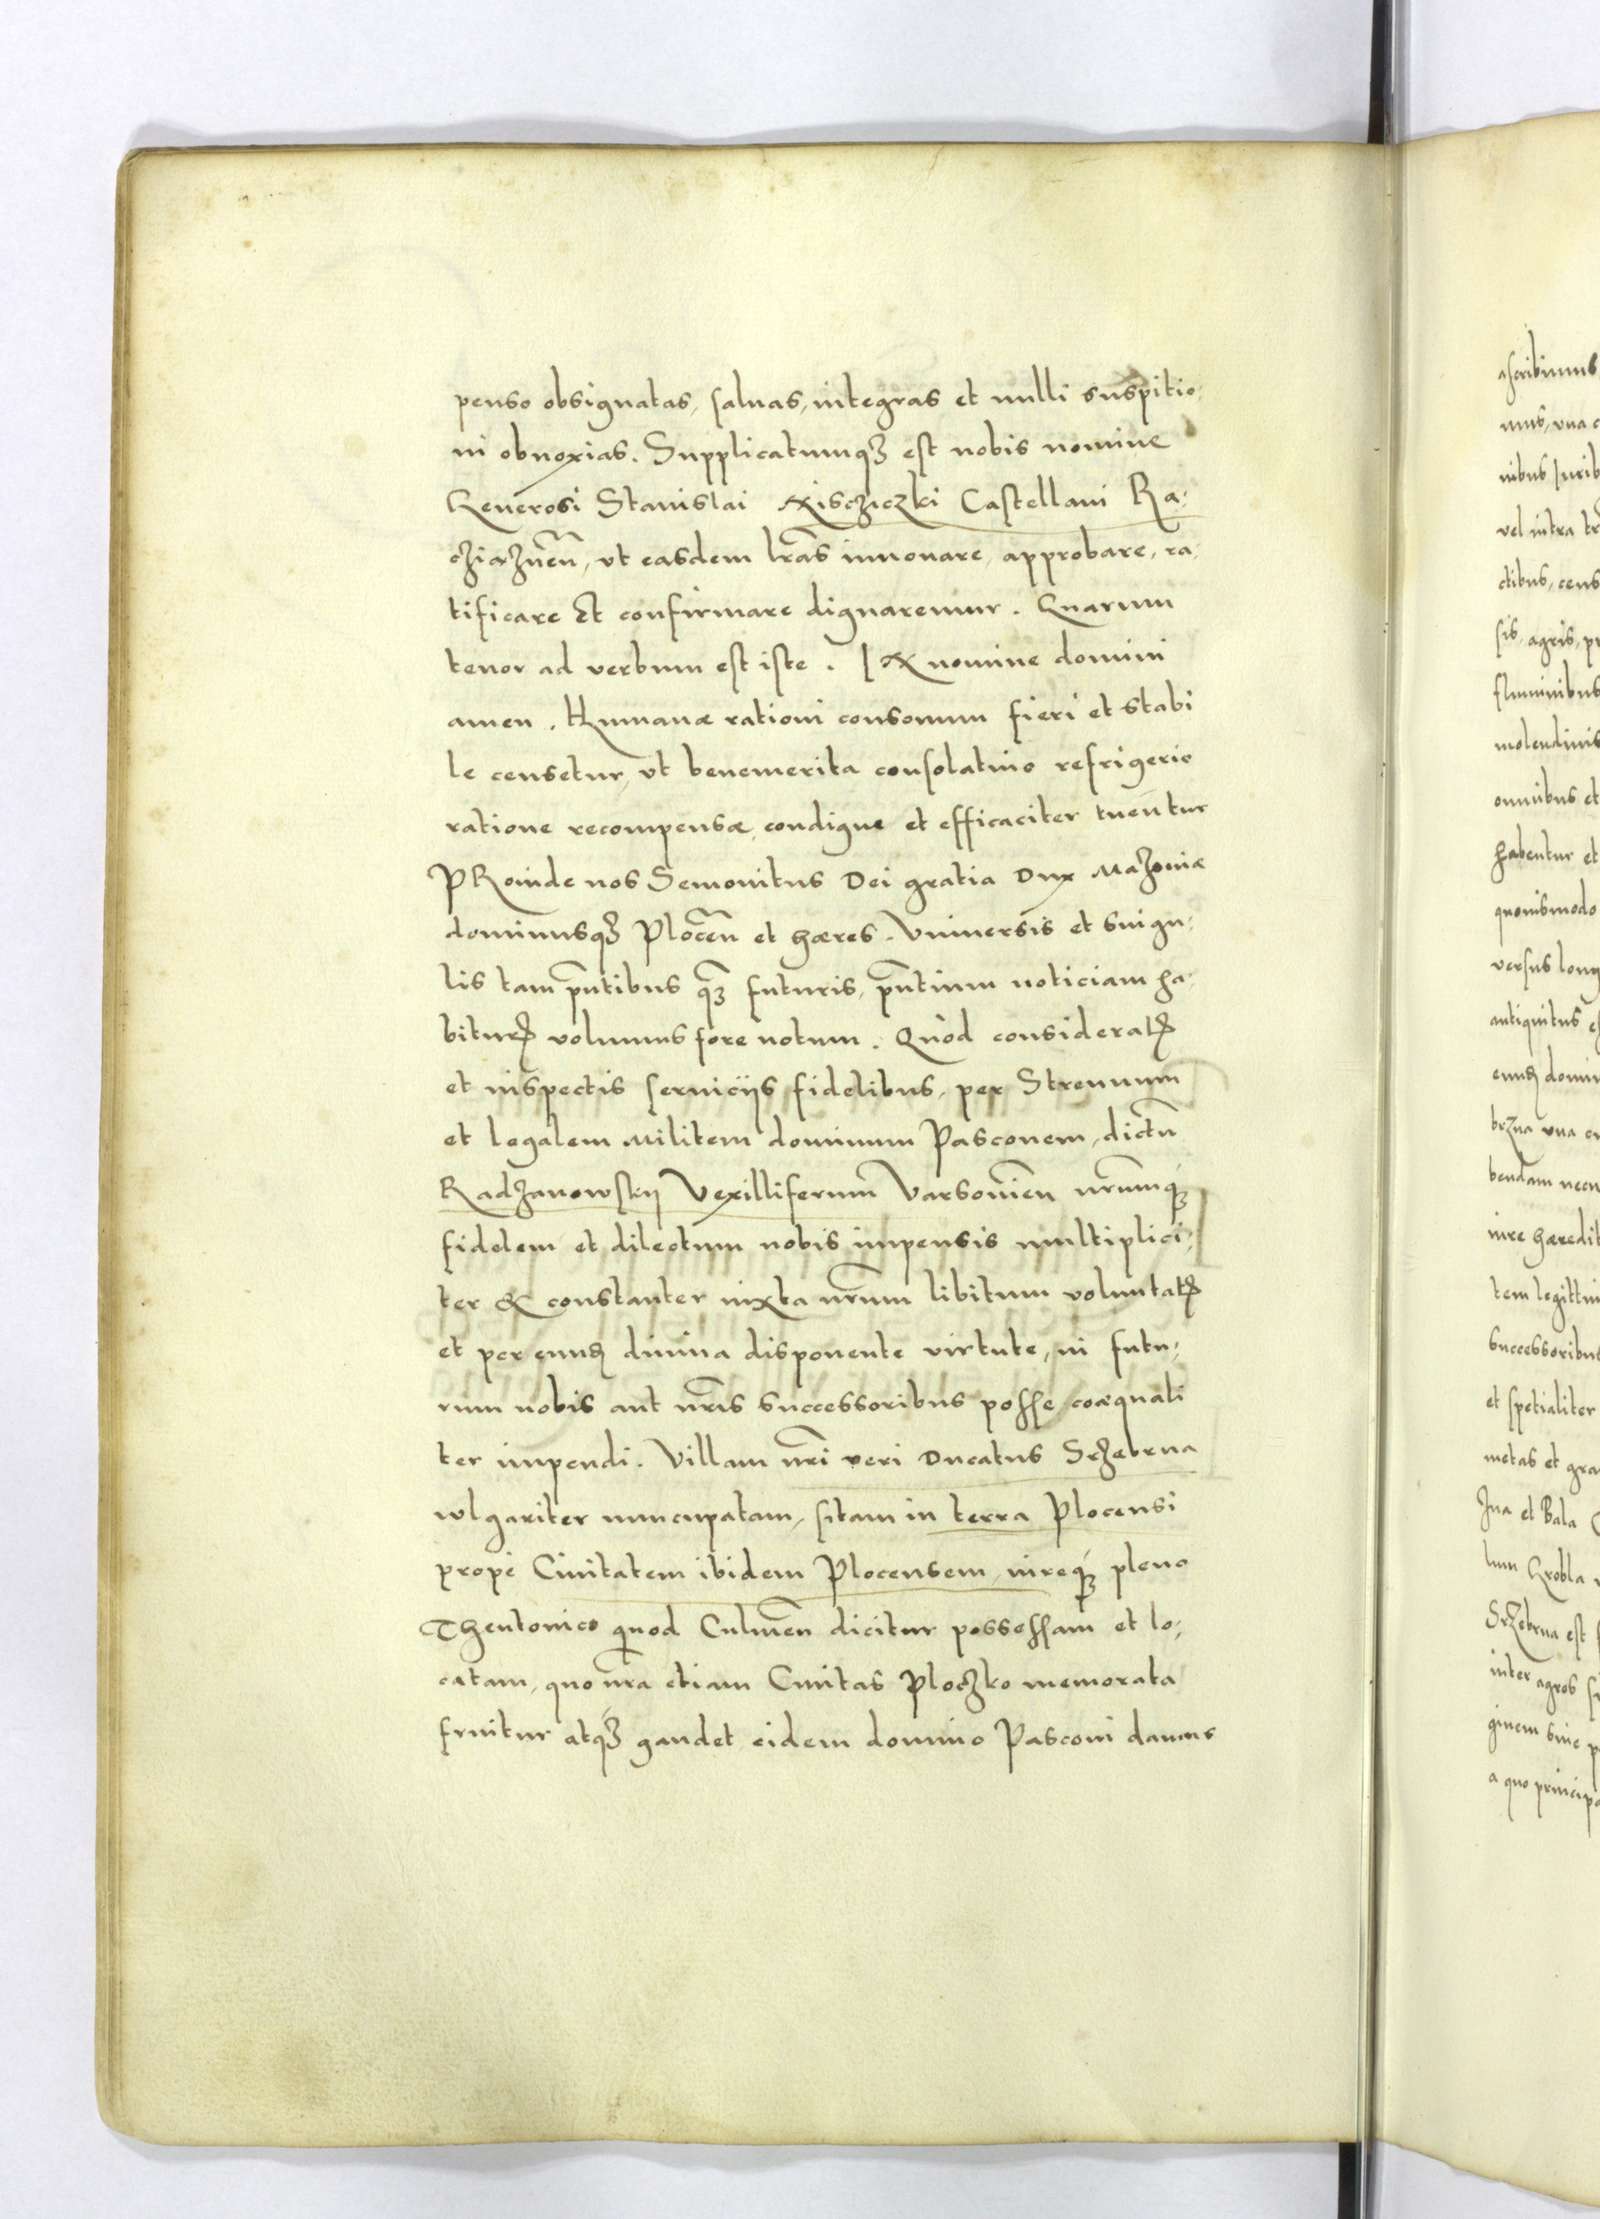 penso obsignatas, saluas, integras et nulli suspitio,
ni obnoxias. Supplicatumqȝ est nobis nomine
Generosi Stanislai Miscziczki Castellani Ra,
cziążneñ, vt easdem lr̃as innouare, approbare, ra,
tificare Et confirmare dignaremur. Quarum
tenor ad verbum est iste. IN nomine domini
amen. Humanæ rationi consonum fieri et stabi
le censetur, vt benemerita consolatiuo refrigerio
ratione recompensæ, condigne et efficaciter tueñtur
PRoinde nos Semouitus Dei gratia Dux Mazouiæ
dominusqȝ Ploceñ et hæres. Vniuersis et singu,
lis tam pñtibus qȝ̃ futuris, pñtium noticiam ha,
biturꝭ volumus fore notum. Quòd consideratꝭ
et inspectis seruicijs fidelibus, per Strenuum
et legalem Militem dominum Pasconem, dictũ
Radzanowskij Vexilliferum Varsouieñ nr̃umqȝ́
fidelem et dilectum nobis impensis multiplici,
ter & constanter iuxta nr̃um libitum voluntatꝭ
et per eunꝗ diuina disponente virtute, in futu,
rum nobis aut nr̃is successoribus posse coæquali
ter impendi. Villam nr̃i veri Ducatus Srzebrna
wlgariter nuncupatam, sitam in terra Plocensi
propè Ciuitatem ibidem Plocensem, iureqȝ́ pleno
Theutonico quod Culmeñ dicitur possessam et lo,
catam, quo nr̃a etiam Ciuitas Ploczko memorata
fruitur atqȝ́ gaudet eidem domino Pasconi damus
ascribimus
mus, vna c
nibus Iurib
vel intra tr̃
ctibus, cens
sis, agris, pr
fluminibus
molendinis
omnibus et
habentur et
quouismodo
versus long
antiquitus
eunꝗ domi
brzna vna
bendam necn
iure hæredit
tem legittim
successoribus
et spetialiter
metas et gra
zna et Bala
lum Grobla
Srzebrna est
inter agros
ginem siue p
a quo principa